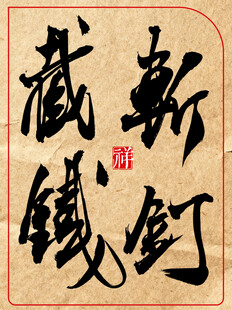 斬釘
截鐵
祥